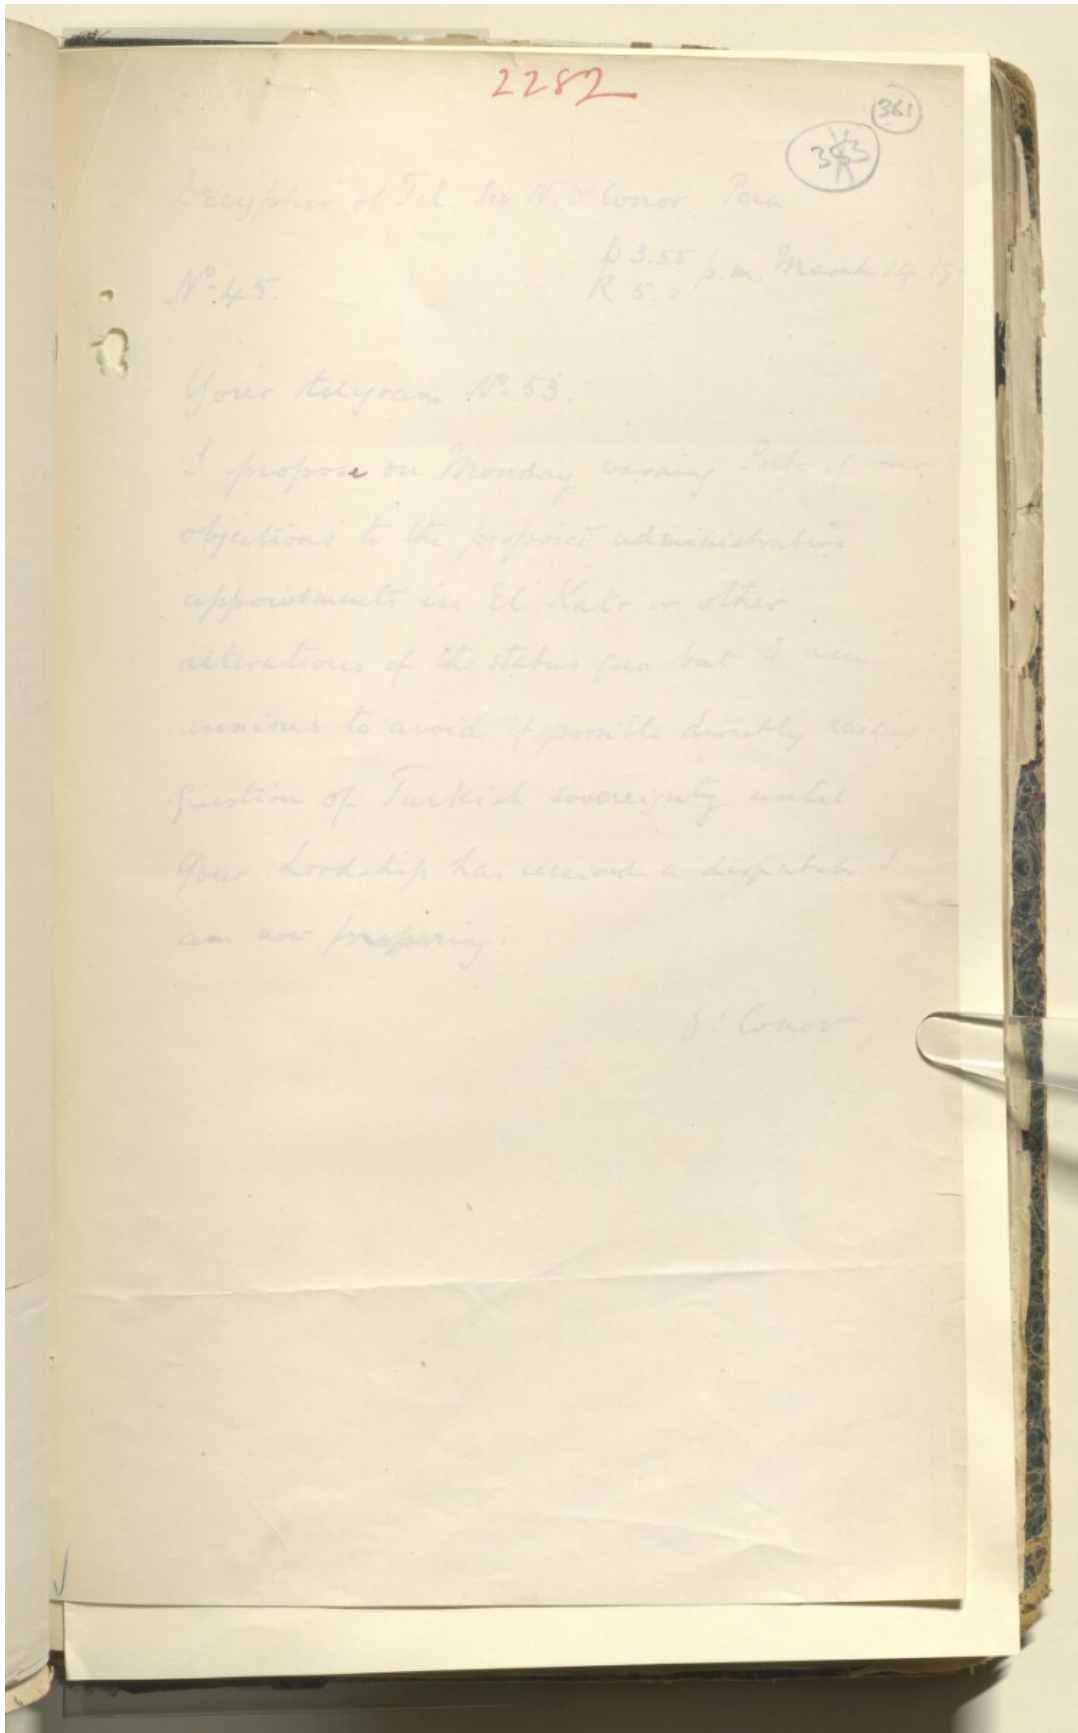 2282
361
353
Decypher of Tel. Sir N. O'Conor. Pera
D 3.55 p.m. March 14.
R 5.0
No. 45.
Your telegram No. 53.
I propose on Monday warning Porte of our
objections to the proposed administrative
appointments in El Katr or other
alterations of the status quo but I am
anxious to avoid if possible directly raising
question of Turkish sovereignty until
Your Lordship has received a despatch I
am now preparing.
O'Conor